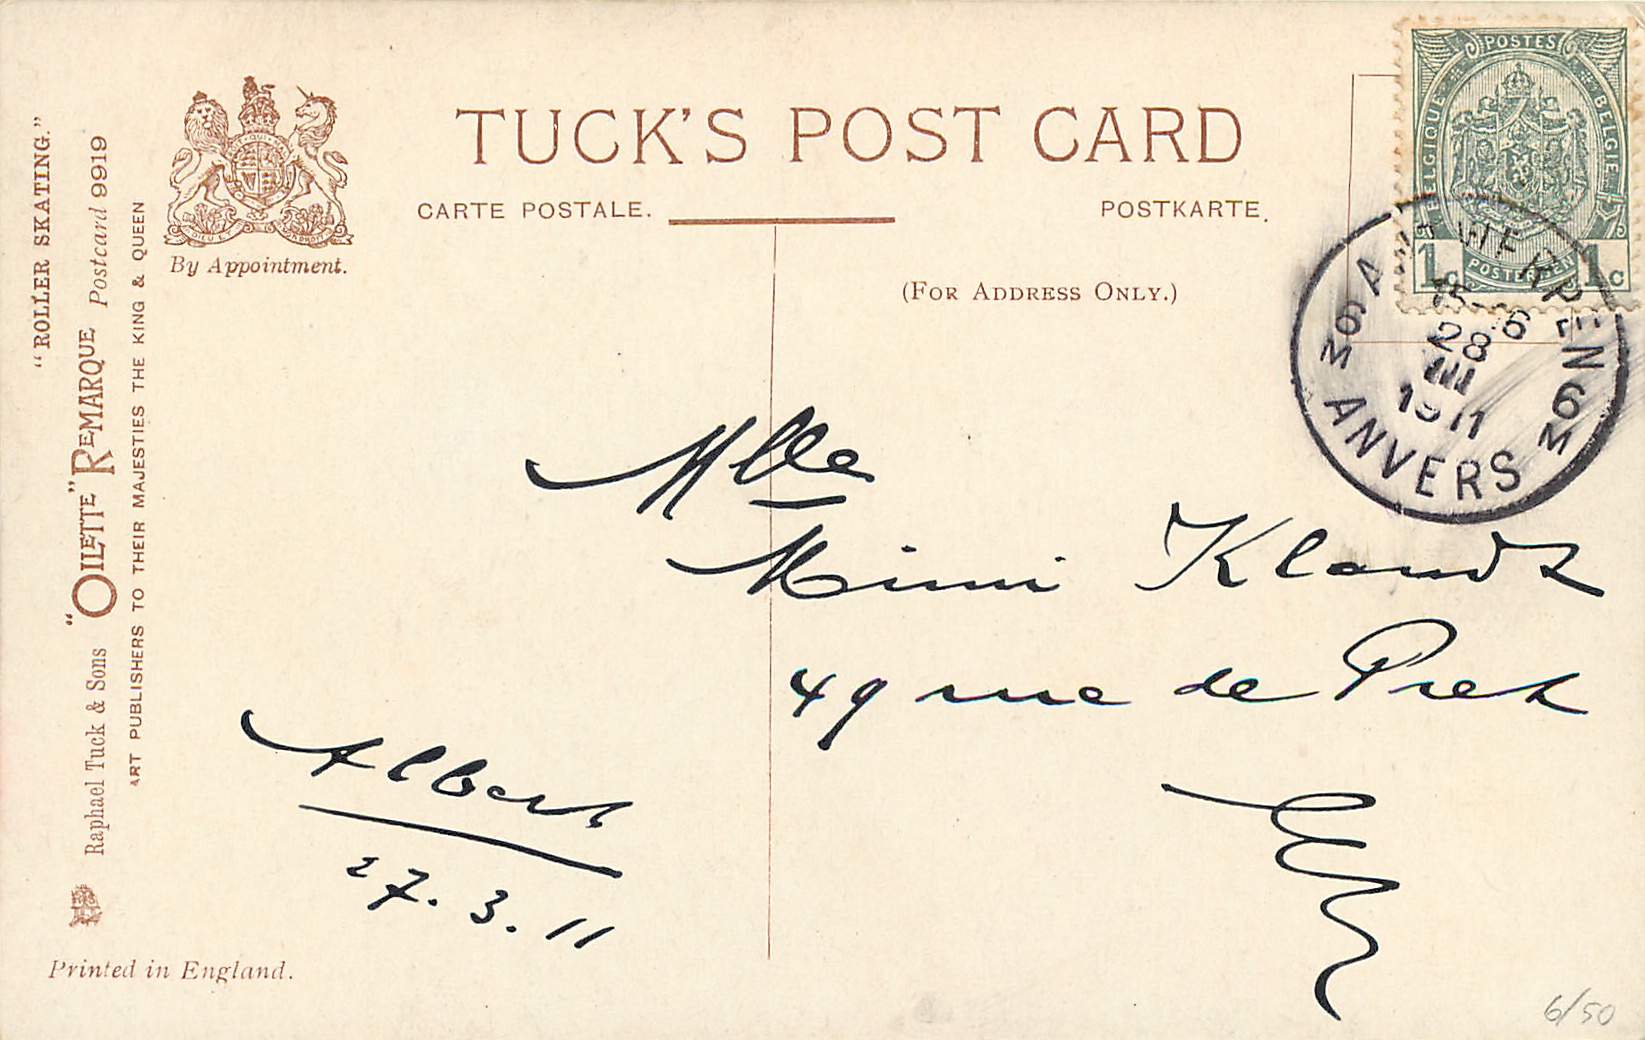 "ROLLER SKATING."
Raphael Tuck & Sons "OILETTE" REMARQUE Postcard 9919
ART PUBLISHERS TO THEIR MAJESTIES THE KING & QUEEN
By Appointment.
TUCK'S POST CARD
CARTE POSTALE.
POSTKARTE.
(FOR ADDRESS ONLY.)
POSTES
BELGIQUE BELGIE
POSTERIJEN
1c 1c
ANTWERPEN 6M
28
III
1911
6M ANVERS
Mlle
Mimi
49 rue de
Albert
27.3.11
Printed in England.
6/50